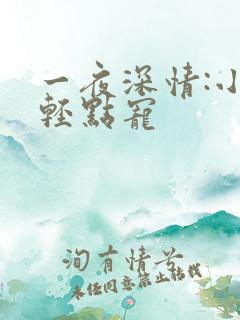 一夜深情:小
輕點寵
洵有情兮
未经同意禁止转载